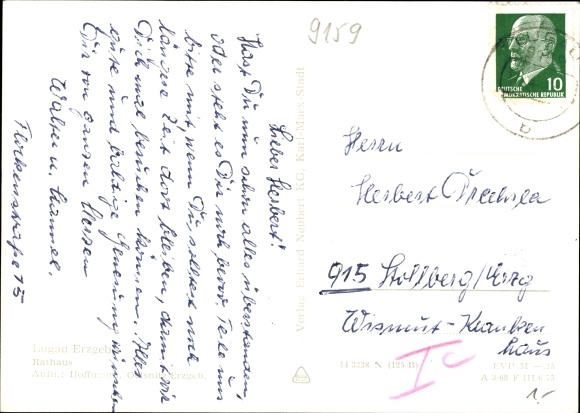 9159
Lieber Herbert!
Hast Du nun schon alles überstanden,
oder steht es Dir noch bevor. Teile uns
bitte mit, wenn Du solltest noch
längere Zeit dort bleiben, damit wir
Dich mal besuchen können. Alles
gute und baldige Genesung wünschen
Dir von ganzen Herzen
Walter u.
Flockenstraße 15
Verlag Erhard Neubert KG, Karl-Marx-Stadt
DEUTSCHE
DEMOKRATISCHE REPUBLIK
10
b
Herrn
Herbert Drechsler
915 Stollberg/Erzg
Wismut-Kranken
haus
Ic
Lugau Erzgeb.
Rathaus
Aufn.: Hoffmann, Oelsnitz/Erzgeb.
14 3238 N (125 B)
EVP M -.25
1.-